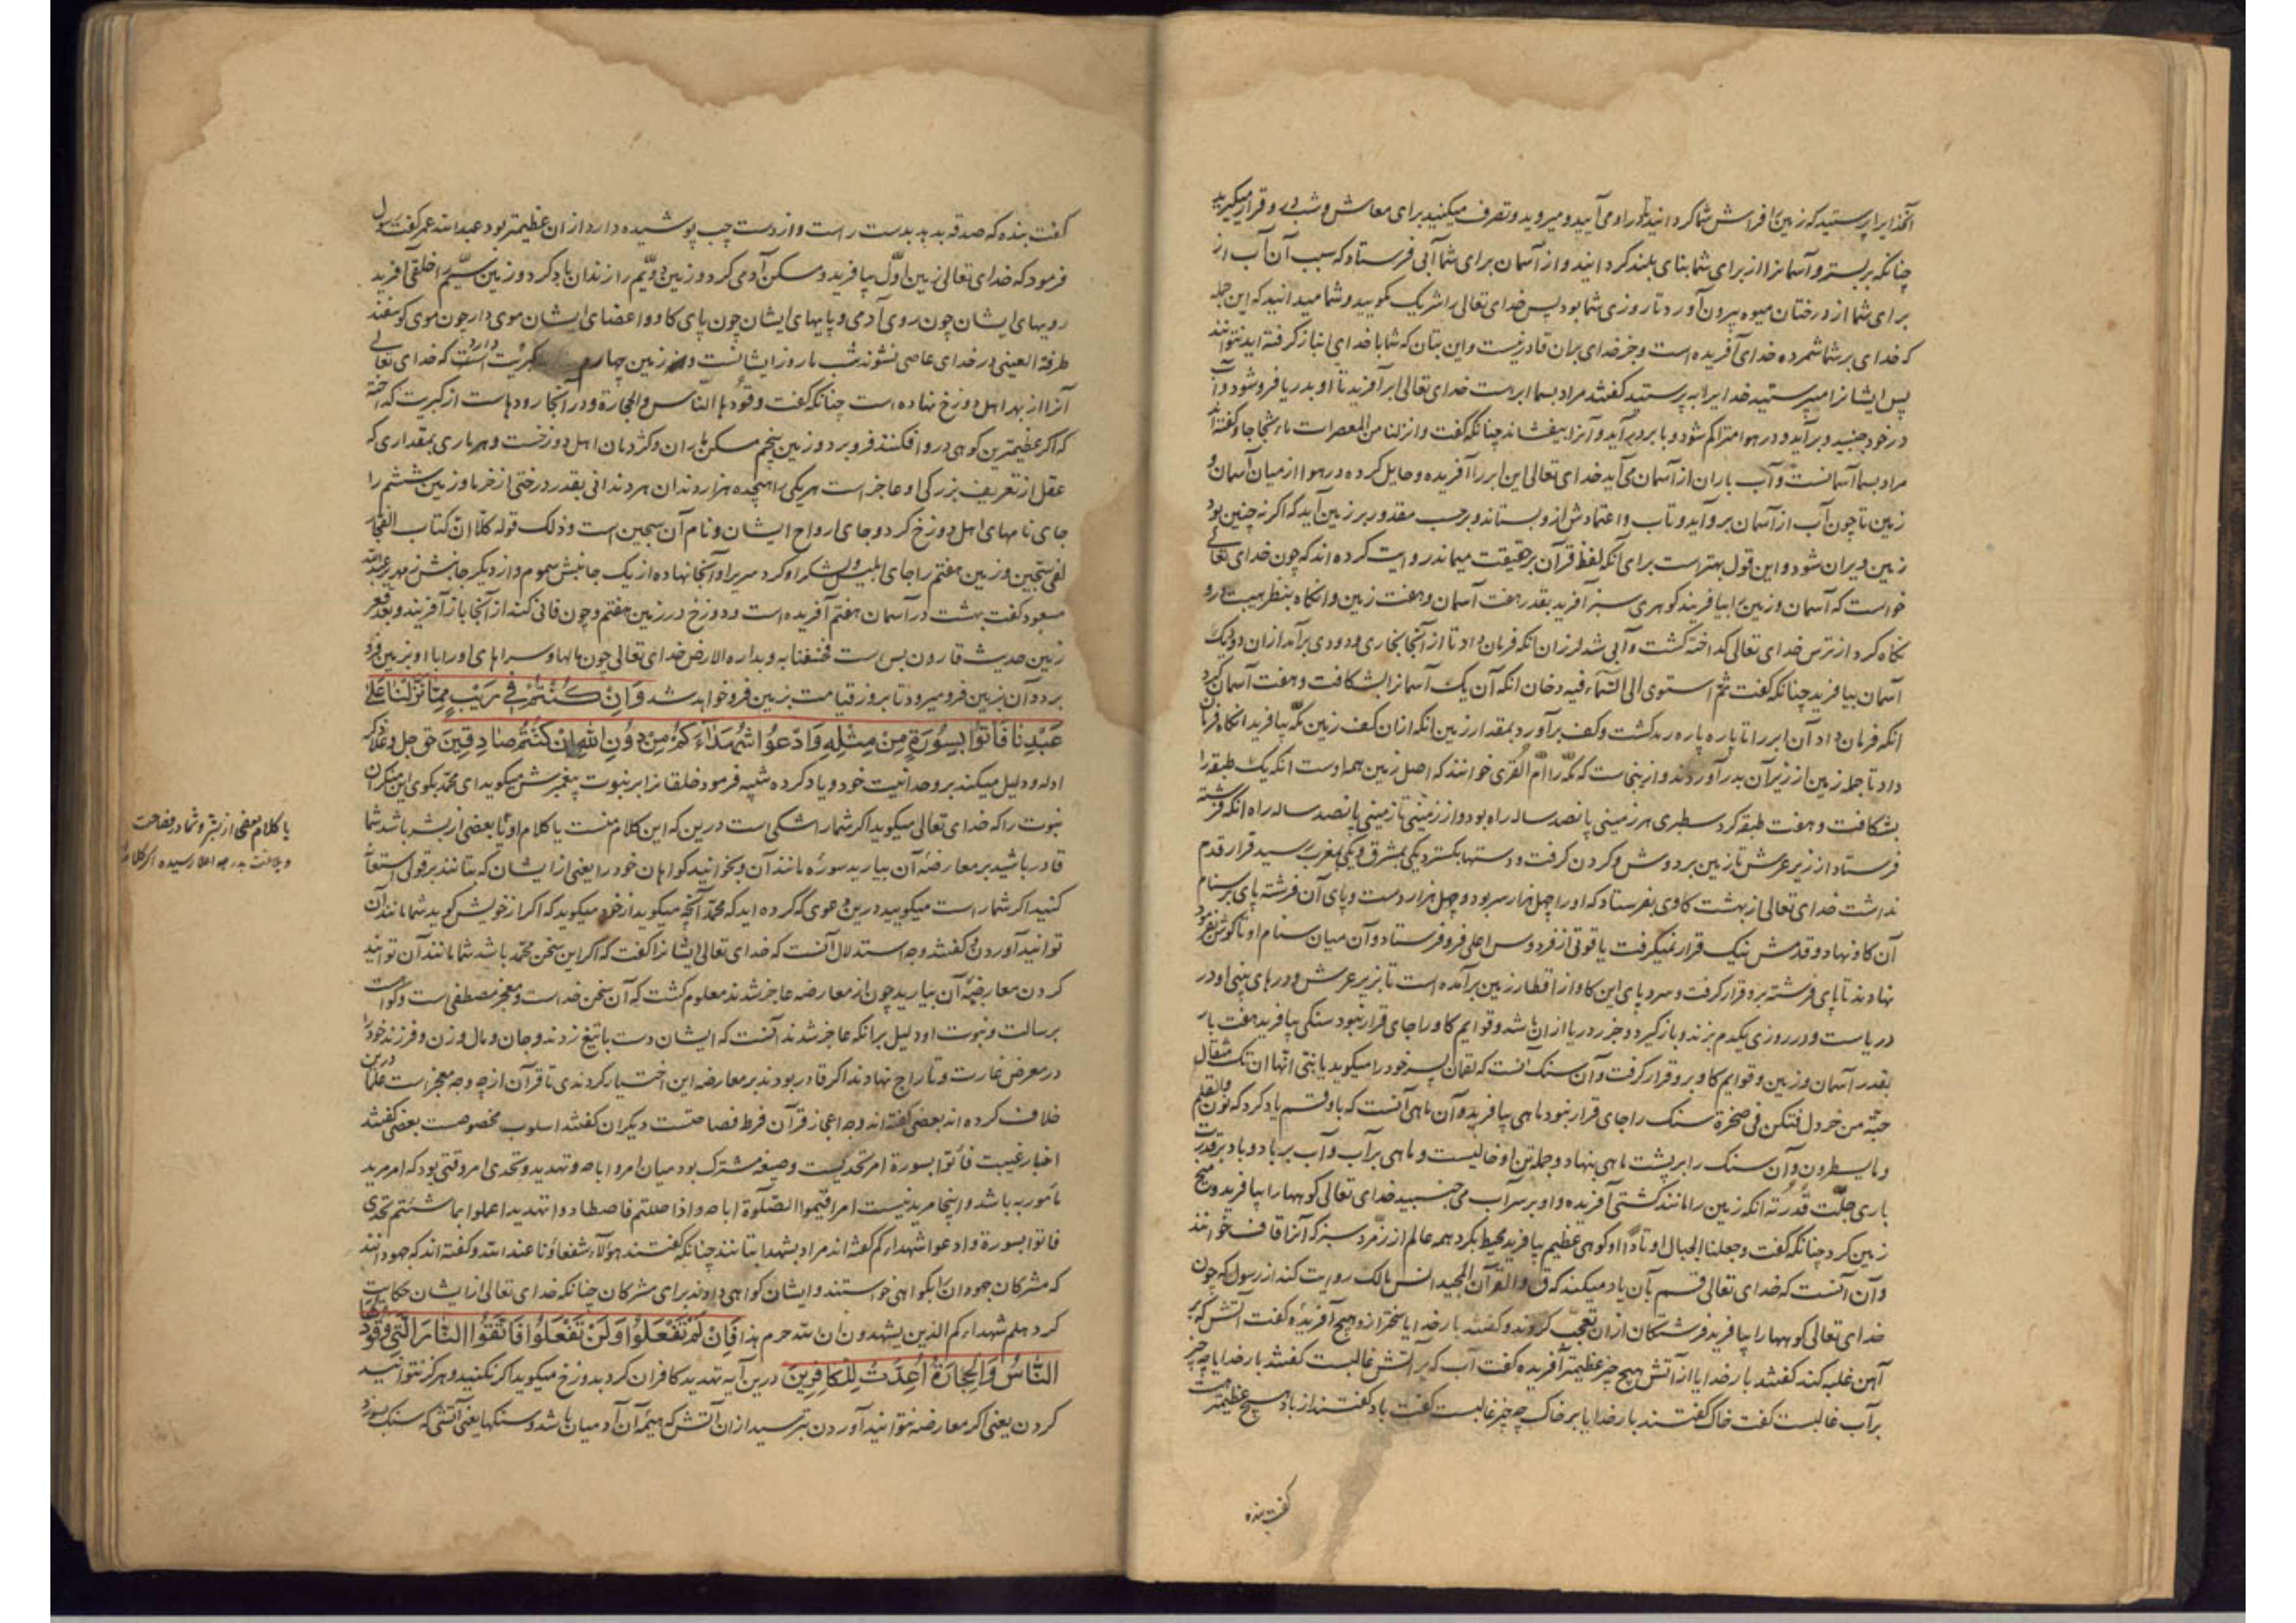 آنخدایرا پرستید که زمین را فراش شما گردانید تا درو می آیید و میروید و تصرف میکنید برای معاش و شب درو قرار میگیرید
چنانکه بر بستر و آسمانرا از برای شما بنای بلند گردانید و از آسمان برای شما آبی فرستاد که سبب آن آب از
برای شما از درختان میوه بیرون آورد تا روزی شما بود پس خدای تعالی را شریک مگویید و شما میدانید که این جمله
که خدای بر شما شمرده خدای آفریده است و جز خدای بران قادر نیست و این بتان که شما با خدای انباز گرفته اید نتوانند
پس ایشانرا مپرستید خدایرا به پرستید گفتند مراد بسما ابر است خدای تعالی ابر آفرید تا او بدریا فرو شود و آب
در خود چنید و بر آید و در هوا متراکم شود و با برد بر آید و آنرا بیفشاند چنانکه گفت و انزلنا من المعصرات ماء ثجاجا و گفته اند
مراد بسما آسمانست و آب باران از آسمان می آید خدای تعالی این ابر را آفریده و حایل کرده در هوا از میان آسمان و
زمین تا چون آب از آسمان برو آید و تاب و اعتمادش ازو بستاند و بر حسب مقدور بر زمین آید که اگر نه چنین بود
زمین ویران شود و این قول بهتر است برای آنکه لفظ قرآن بر حقیقت میماند روایت کرده اند که چون خدای تعالی
خواست که آسمان و زمین را بیافریند گوهری سبز آفرید بقدر هفت آسمان و هفت زمین و انگاه بنظر هیبت درو
نگاه کرد از ترس خدای تعالی گداخته گشت و آبی شد لرزان انگه فرمان داد تا از آنجا بخاری و دودی بر آمد ازان دود یک
آسمان بیافرید چنانکه گفت ثم استوی الی السماء فیه دخان انگه آن یک آسمانرا بشکافت و هفت آسمان کرد
انگه فرمان داد آن ابر را تا پاره پاره گشت و کف بر آورد بمقدار زمین انگه ازان کف زمین مکه بیافرید انگاه فرمان
داد تا جمله زمین از زیر آن بدر آوردند و ازینجا است که مکه را ام القری خوانند که اصل زمین همه اوست انگه یک طبقه را
بشکافت و هفت طبقه کرد سطبری هر زمینی پانصد ساله راه بود و از زمینی تا زمینی پانصد ساله راه انگه فرشته
فرستاد از زیر عرش تا زمین بر دوش و گردن گرفت و دستها بگسترد یکی بمشرق و یکی بمغرب رسید قرار قدم
نداشت خدای تعالی از بهشت گاوی بفرستاد که او را چهل هزار سر بود و چهل هزار دست و پای آن فرشته پای بر سنام
آن گاو نهاد و قدمش نیک قرار نمیگرفت یاقوتی از فردوس اعلی فرو فرستاد و آن میان سنام او تا گوش بفرمود
نهادند تا پای فرشته برو قرار گرفت و سروهای این گاو از اقطار زمین بر آمده است تا بزیر عرش و دو رهای بینی او در
دریاست و در روزی یکدم بزند و بازگیرد و جزر دریا ازان باشد و قوایم گاو را جای قرار نبود سنگی بیافرید هفت بار
بقدر آسمان و زمین و قوایم گاو برو قرار گرفت و آن سنگ آنست که لقمان پسر خود را میگوید یا بنی انها ان تک مثقال
حبة من خردل فتکن فی صخرة سنگ را جای قرار نبود ماهی بیافرید و آن ماهی آنست که باو قسم یاد کرد که نون والقلم
و ما یسطرون و آن سنگ را بر پشت ماهی بنهاد و جمله تن او خالیست و ماهی بر آب و آب بر باد و باد بر قدرت
باری جلت قدرته انگه زمین را مانند کشتی آفریده و او بر سر آب می جنبید خدای تعالی کوهها را بیافرید و میخ
زمین کرد چنانکه گفت و جعلنا الجبال اوتادا و کوهی عظیم بیافرید محیط بگرد همه عالم از زمرد سبز که آنرا قاف خوانند
و آن آنست که خدای تعالی قسم بآن یاد میکند که ق والقرآن المجید انس مالک روایت کند از رسول که چون
خدای تعالی کوهها را بیافرید فرشتگان ازان تعجب کردند و گفتند بار خدایا سختر ازو هیچ آفریدهٔ گفت آتش که بر
آهن غلبه کند گفتند بار خدایا از آتش هیچ چیز عظیمتر آفریده گفت آب که بر آتش غالبست گفتند بار خدایا چه چیز
بر آب غالبست گفت خاک گفتند بار خدایا بر خاک چه چیز غالبست گفت باد گفتند از باد هیچ عظیمتر هست
گفت بنده
گفت بنده که صدقه بدهد بدست راست و از دست چپ پوشیده دارد ازان عظیمتر بود عبدالله عمر گفت رسول
فرمود که خدای تعالی زمین اول بیافرید و مسکن آدمی کرد و زمین دویم را زندان باد کرد و زمین سیم را خلقی آفرید
رویهای ایشان چون روی آدمی و پایهای ایشان چون پای گاو و اعضای ایشان موی دار چون موی گوسفند
طرفة العینی در خدای عاصی نشوند شب ما روز ایشانست و در زمین چهارم کبریت است که خدای تعالی
آنرا از بهر اهل دوزخ نهاده است چنانکه گفت وقودها الناس والحجارة و در آنجا رودهاست از کبریت گداخته
که اگر عظیمترین کوهی درو افکنند فرو برد و زمین پنجم مسکن ماران و کژدمان اهل دوزخست و هر ماری بمقداری که
عقل از تعریف بزرگی او عاجز است هر یکی را هیجده هزار دندان هر دندانی بقدر درختی از خرما و زمین ششم را
جای نامهای اهل دوزخ کرد و جای ارواح ایشان و نام آن سجین است و ذلک قوله کلا ان کتاب الفجار
لفی سجین و زمین هفتم را جای ابلیس و لشکر او کرد سریر او آنجا نهاده از یک جانبش سموم و از دیگر جانبش زمهریر عبدالله
مسعود گفت بهشت در آسمان هفتم آفریده است و دوزخ در زمین هفتم و چون فانی کند از آنجا باز آفریند و بقعر
زمین حدیث قارون بس است فخسفنا به و بداره الارض خدای تعالی چون مالها و سراهای او را با او بزمین فرو
برد و آن بزمین فرو میرود تا بروز قیامت بزمین فرو خواهد شد وَاِنْ کُنْتُمْ فِی رَیْبٍ مِمَّا نَزَّلْنَا عَلَی
عَبْدِنَا فَأْتُوا بِسُورَةٍ مِنْ مِثْلِهِ وَادْعُوا شُهَدَاءَکُمْ مِنْ دُونِ اللهِ اِنْ کُنْتُمْ صَادِقِینَ حق جل و علا ذکر
ادله و دلیل میکند بر وحدانیت خود و یاد کرده شبیه فرمود خلقانرا بر نبوت پیغمبرش میگوید ای محمد بگوی این منکران
نبوت را که خدای تعالی میگوید اگر شما را شکی است درین که این کلام منست یا کلام او یا بعضی از بشر باشد شما
قادر باشید بر معارضهٔ آن بیارید سورهٔ مانند آن و بخوانید گواهان خود را یعنی از ایشان که بتانند بر قولی استعانت
کنید اگر شما راست میگویید درین دعوی که کرده اید که محمد آنچه میگوید از خود میگوید که اگر از خویش گوید شما مانند آن
توانید آوردن و گفتند وجه استدلال آنست که خدای تعالی ایشانرا گفت که اگر این سخن محمد باشد شما مانند آن توانید
کردن معارضهٔ آن بیارید چون از معارضه عاجز شدند معلوم گشت که آن سخن خداست و معجز مصطفی است و گواست
برسالت و نبوت او دلیل برانکه عاجز شدند آنست که ایشان دست با تیغ زدند و جان و مال و زن و فرزند خود را
در معرض غارت و تاراج نهادند اگر قادر بودند بر معارضه این اختیار کردندی تا قرآن از چه وجه معجز است علما درین
خلاف کرده اند بعضی گفته اند وجه اعجاز قرآن فرط فصاحتست دیگران گفتند اسلوب مخصوصست بعضی گفتند
اخبار غیبست فأتوا بسورة امر تحدیست و صیغه مشترک بود میان امر و اباحه و تهدید و تحدی امر وقتی بود که امر مرید
مأمور به باشد و اینجا مرید نیست امر اقیموا الصلوة اباحه و اذا حللتم فاصطادوا تهدید اعملوا ما شئتم تحدی
فاتوا بسورة وادعوا شهداءکم گفته اند مراد بشهدا بتانند چنانکه گفتند هؤلاء شفعاؤنا عند الله و گفته اند که جهودانند
که مشرکان جهودان را بگواهی خواستند و ایشان گواهی دادند برای مشرکان چنانکه خدای تعالی از ایشان حکایت
کرد هلم شهداءکم الذین یشهدون ان الله حرم هذا فَاِنْ لَمْ تَفْعَلُوا وَلَنْ تَفْعَلُوا فَاتَّقُوا النَّارَ الَّتِی وَقُودُهَا
النَّاسُ وَالْحِجَارَةُ اُعِدَّتْ لِلْکَافِرِینَ درین آیه تهدید کافران کرد بدوزخ میگوید اگر نکنید و هرگز نتوانید
کردن یعنی اگر معارضه نتوانید آوردن بترسید ازان آتش که هیمهٔ آن آدمیان باشد و سنگها یعنی آتشی که سنگ بسوزد
یا کلام بعضی از بشر و شما در فصاحت
و بلاغت بدرجه اعلا رسیده اگر کلام